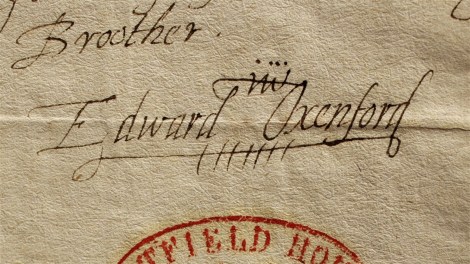 Broother.
Edward Oxenford
TFIELD HO